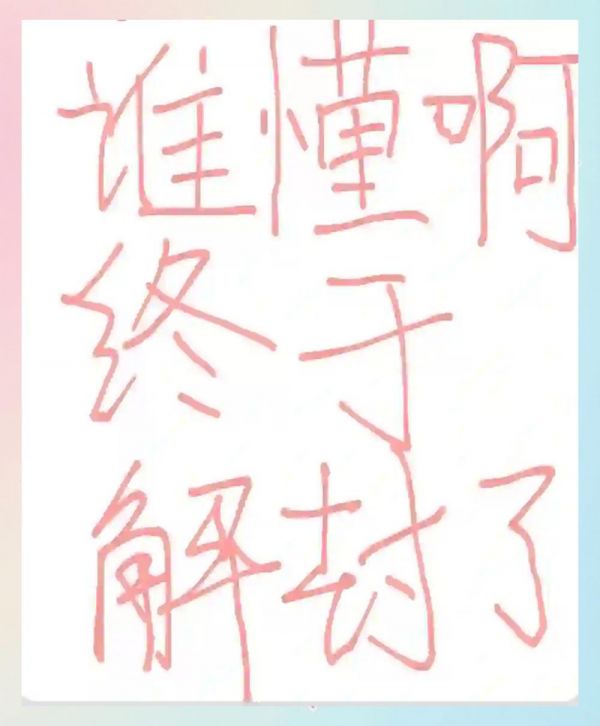 谁懂啊
终于
解封了